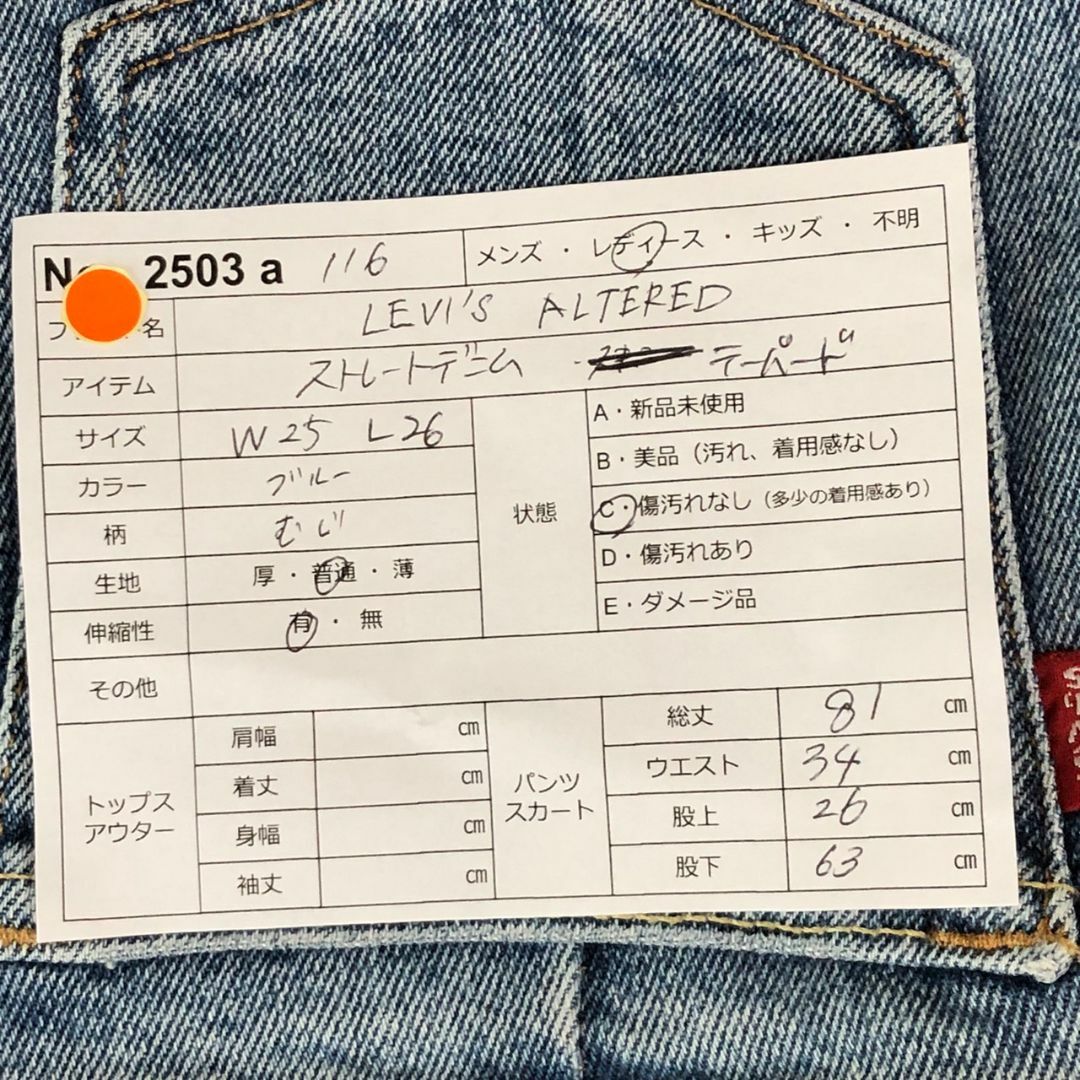 2503 a 116
メンズ・レディース・キッズ・不明
名 LEVI'S ALTERED
アイテム ストレートデニム テーパード
サイズ W25 L26
カラー ブルー
柄 むじ
生地 厚・普通・薄
伸縮性 有・無
状態
A・新品未使用
B・美品（汚れ、着用感なし）
C・傷汚れなし（多少の着用感あり）
D・傷汚れあり
E・ダメージ品
その他
トップス
アウター
肩幅 cm
着丈 cm
身幅 cm
袖丈 cm
パンツ
スカート
総丈 81 cm
ウエスト 34 cm
股上 26 cm
股下 63 cm